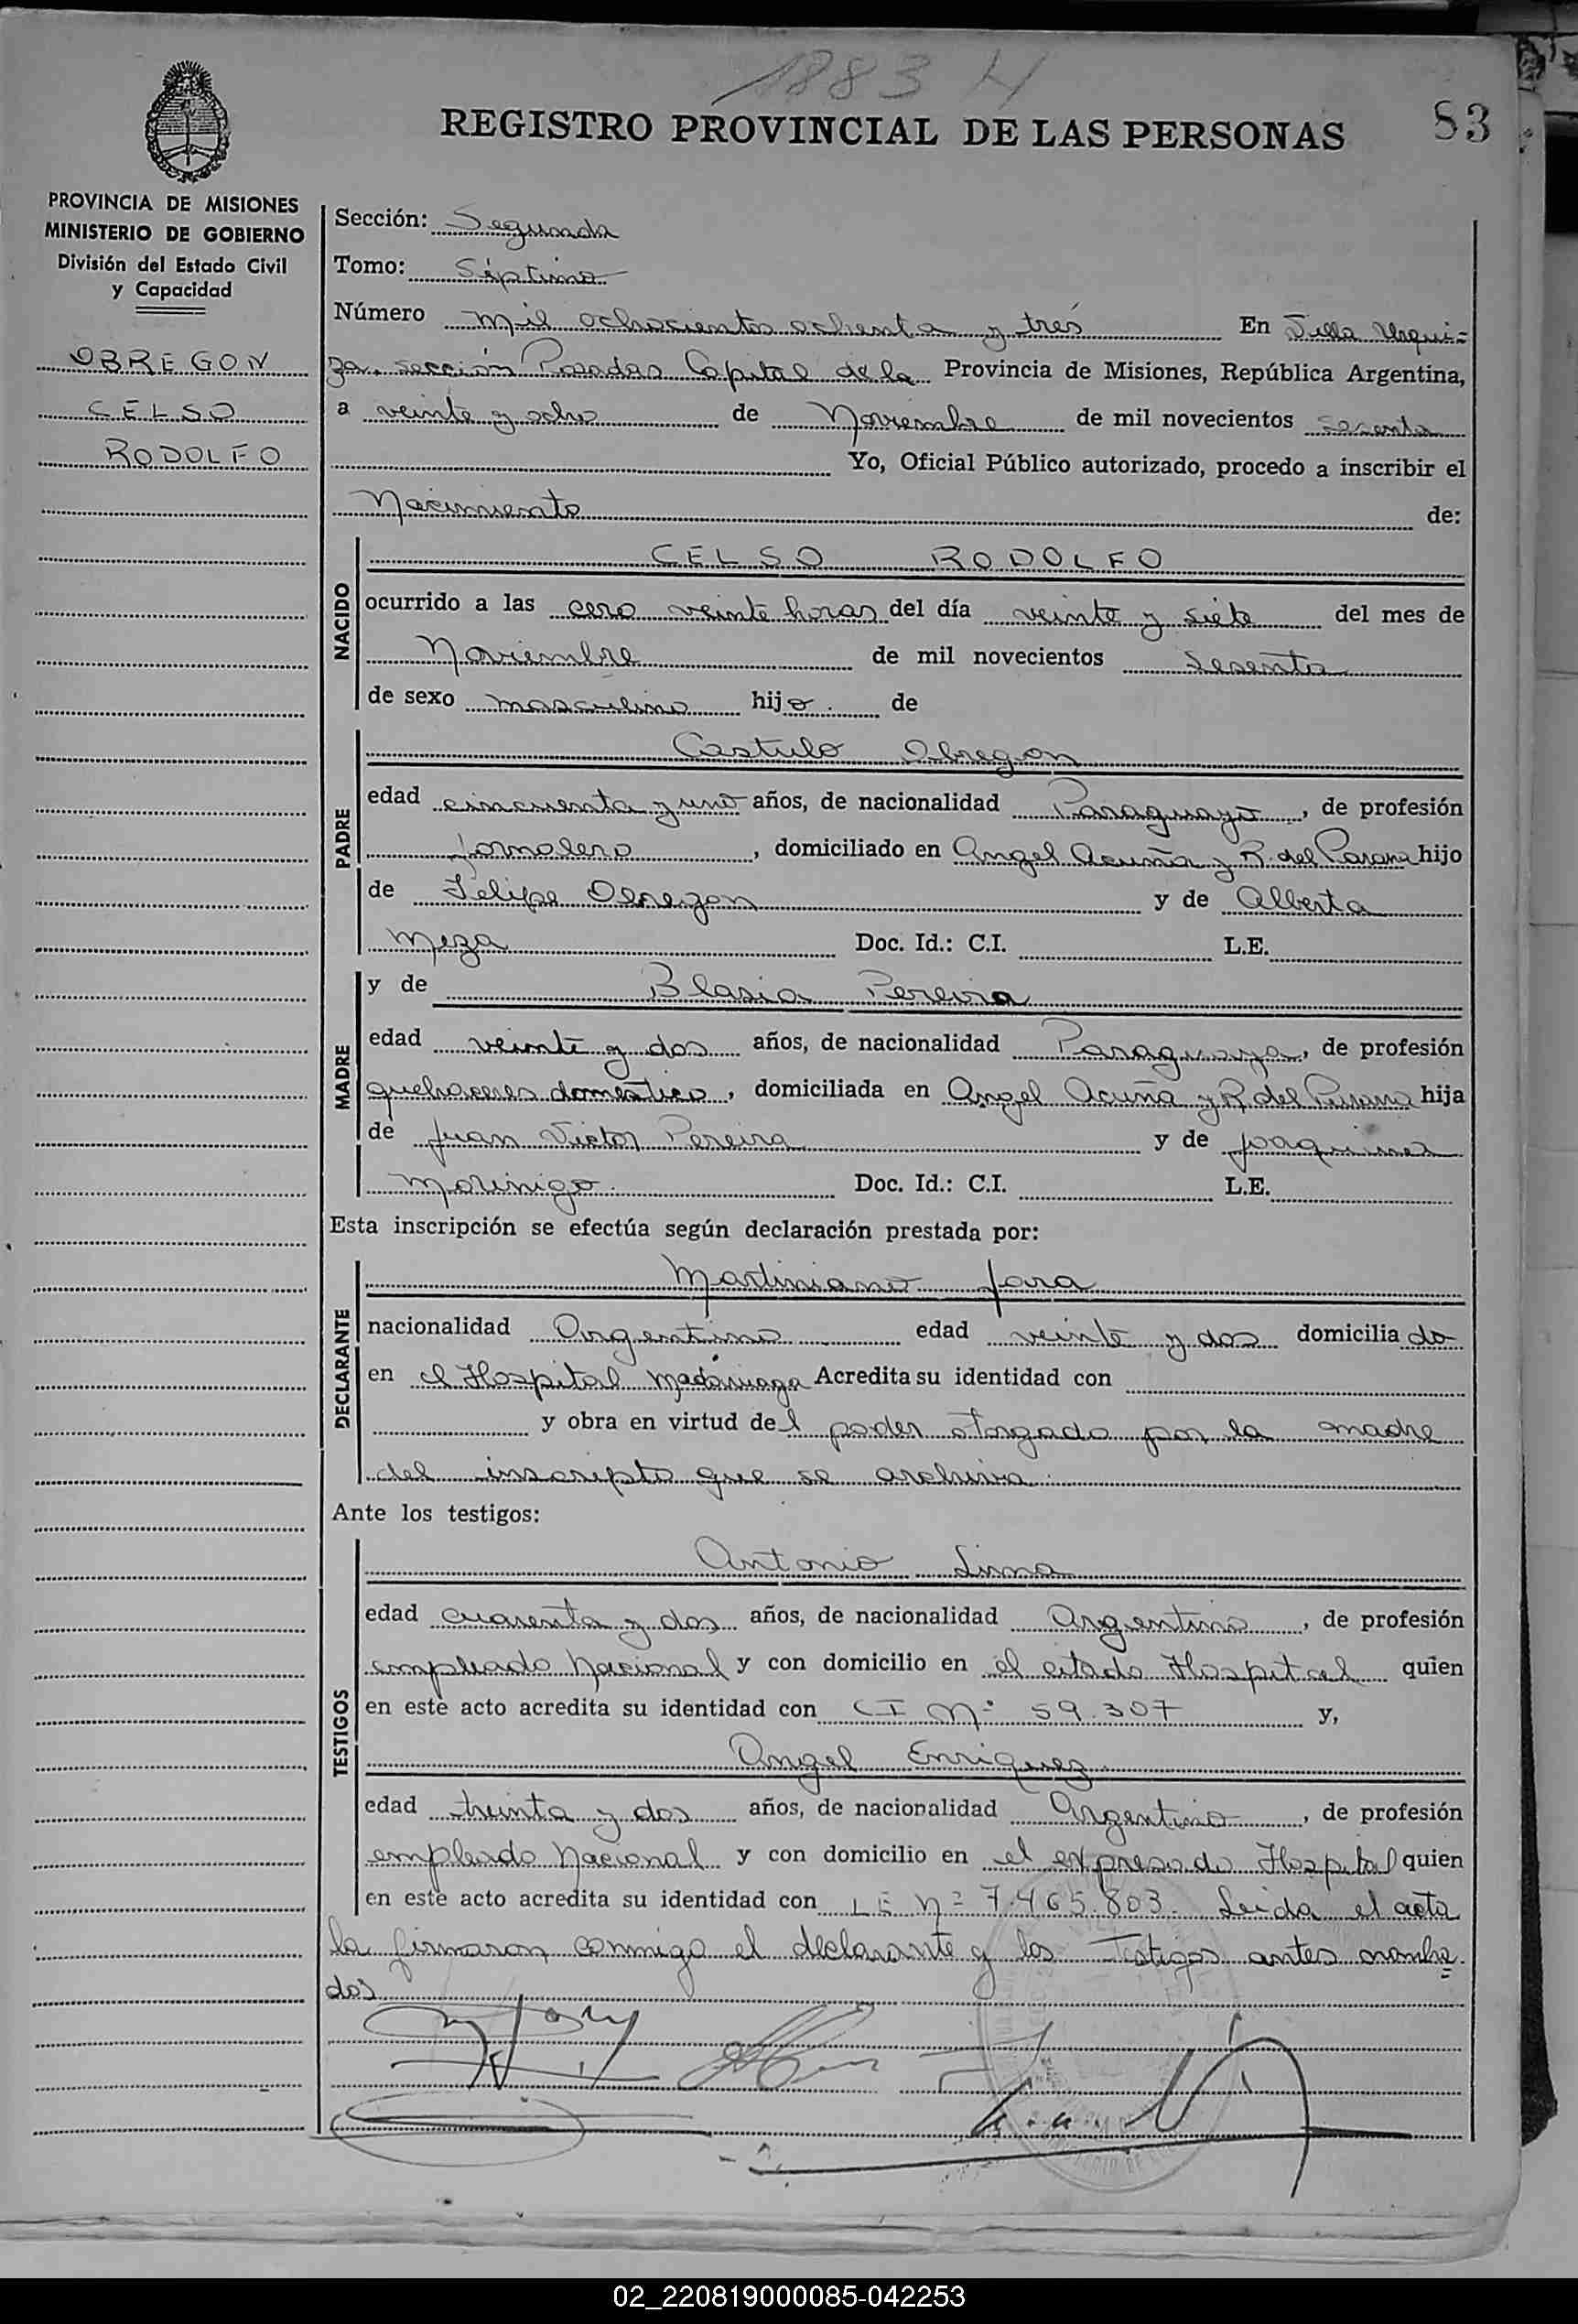 1883 H
REGISTRO PROVINCIAL DE LAS PERSONAS
83
PROVINCIA DE MISIONES
MINISTERIO DE GOBIERNO
División del Estado Civil
y Capacidad
OBREGON
CELSO
RODOLFO
Sección: Segunda
Tomo: Séptimo
Número mil ochocientos ochenta y tres En Villa Urqui-
za, sección Posadas Capital de la Provincia de Misiones, República Argentina,
a veinte y ocho de Noviembre de mil novecientos sesenta
Yo, Oficial Público autorizado, procedo a inscribir el
Nacimiento de:
NACIDO
CELSO RODOLFO
ocurrido a las cero veinte horas del día veinte y siete del mes de
Noviembre de mil novecientos sesenta
de sexo masculino hijo. de
PADRE
Castulo Obregon
edad cincuenta y uno años, de nacionalidad Paraguayo, de profesión
Jornalero, domiciliado en Angel Acuña y R. del Parana hijo
de Felipe Obregon y de Alberta
Meza Doc. Id.: C.I. L.E.
MADRE
y de Blasia Pereira
edad veinte y dos años, de nacionalidad Paraguaya, de profesión
quehaceres domestico, domiciliada en Angel Acuña y R del Parana hija
de Juan Victor Pereira y de Joaquina
Morinigo. Doc. Id.: C.I. L.E.
Esta inscripción se efectúa según declaración prestada por:
DECLARANTE
Martiniano Jara
nacionalidad Argentino edad veinte y dos domiciliado
en el Hospital Madariaga Acredita su identidad con
y obra en virtud del poder otorgado por la madre
del inscripto que se archiva.
Ante los testigos:
TESTIGOS
Antonio Lima
edad cuarenta y dos años, de nacionalidad Argentino, de profesión
empleado Nacional y con domicilio en el citado Hospital quien
en este acto acredita su identidad con CI Nº 59.307 y,
Angel Enriquez
edad treinta y dos años, de nacionalidad Argentino, de profesión
empleado Nacional y con domicilio en el expresado Hospital quien
en este acto acredita su identidad con LE Nº 7.465.803. Leida el acta
la firmaron conmigo el declarante y los Testigos antes nombra
dos
02_220819000085-042253